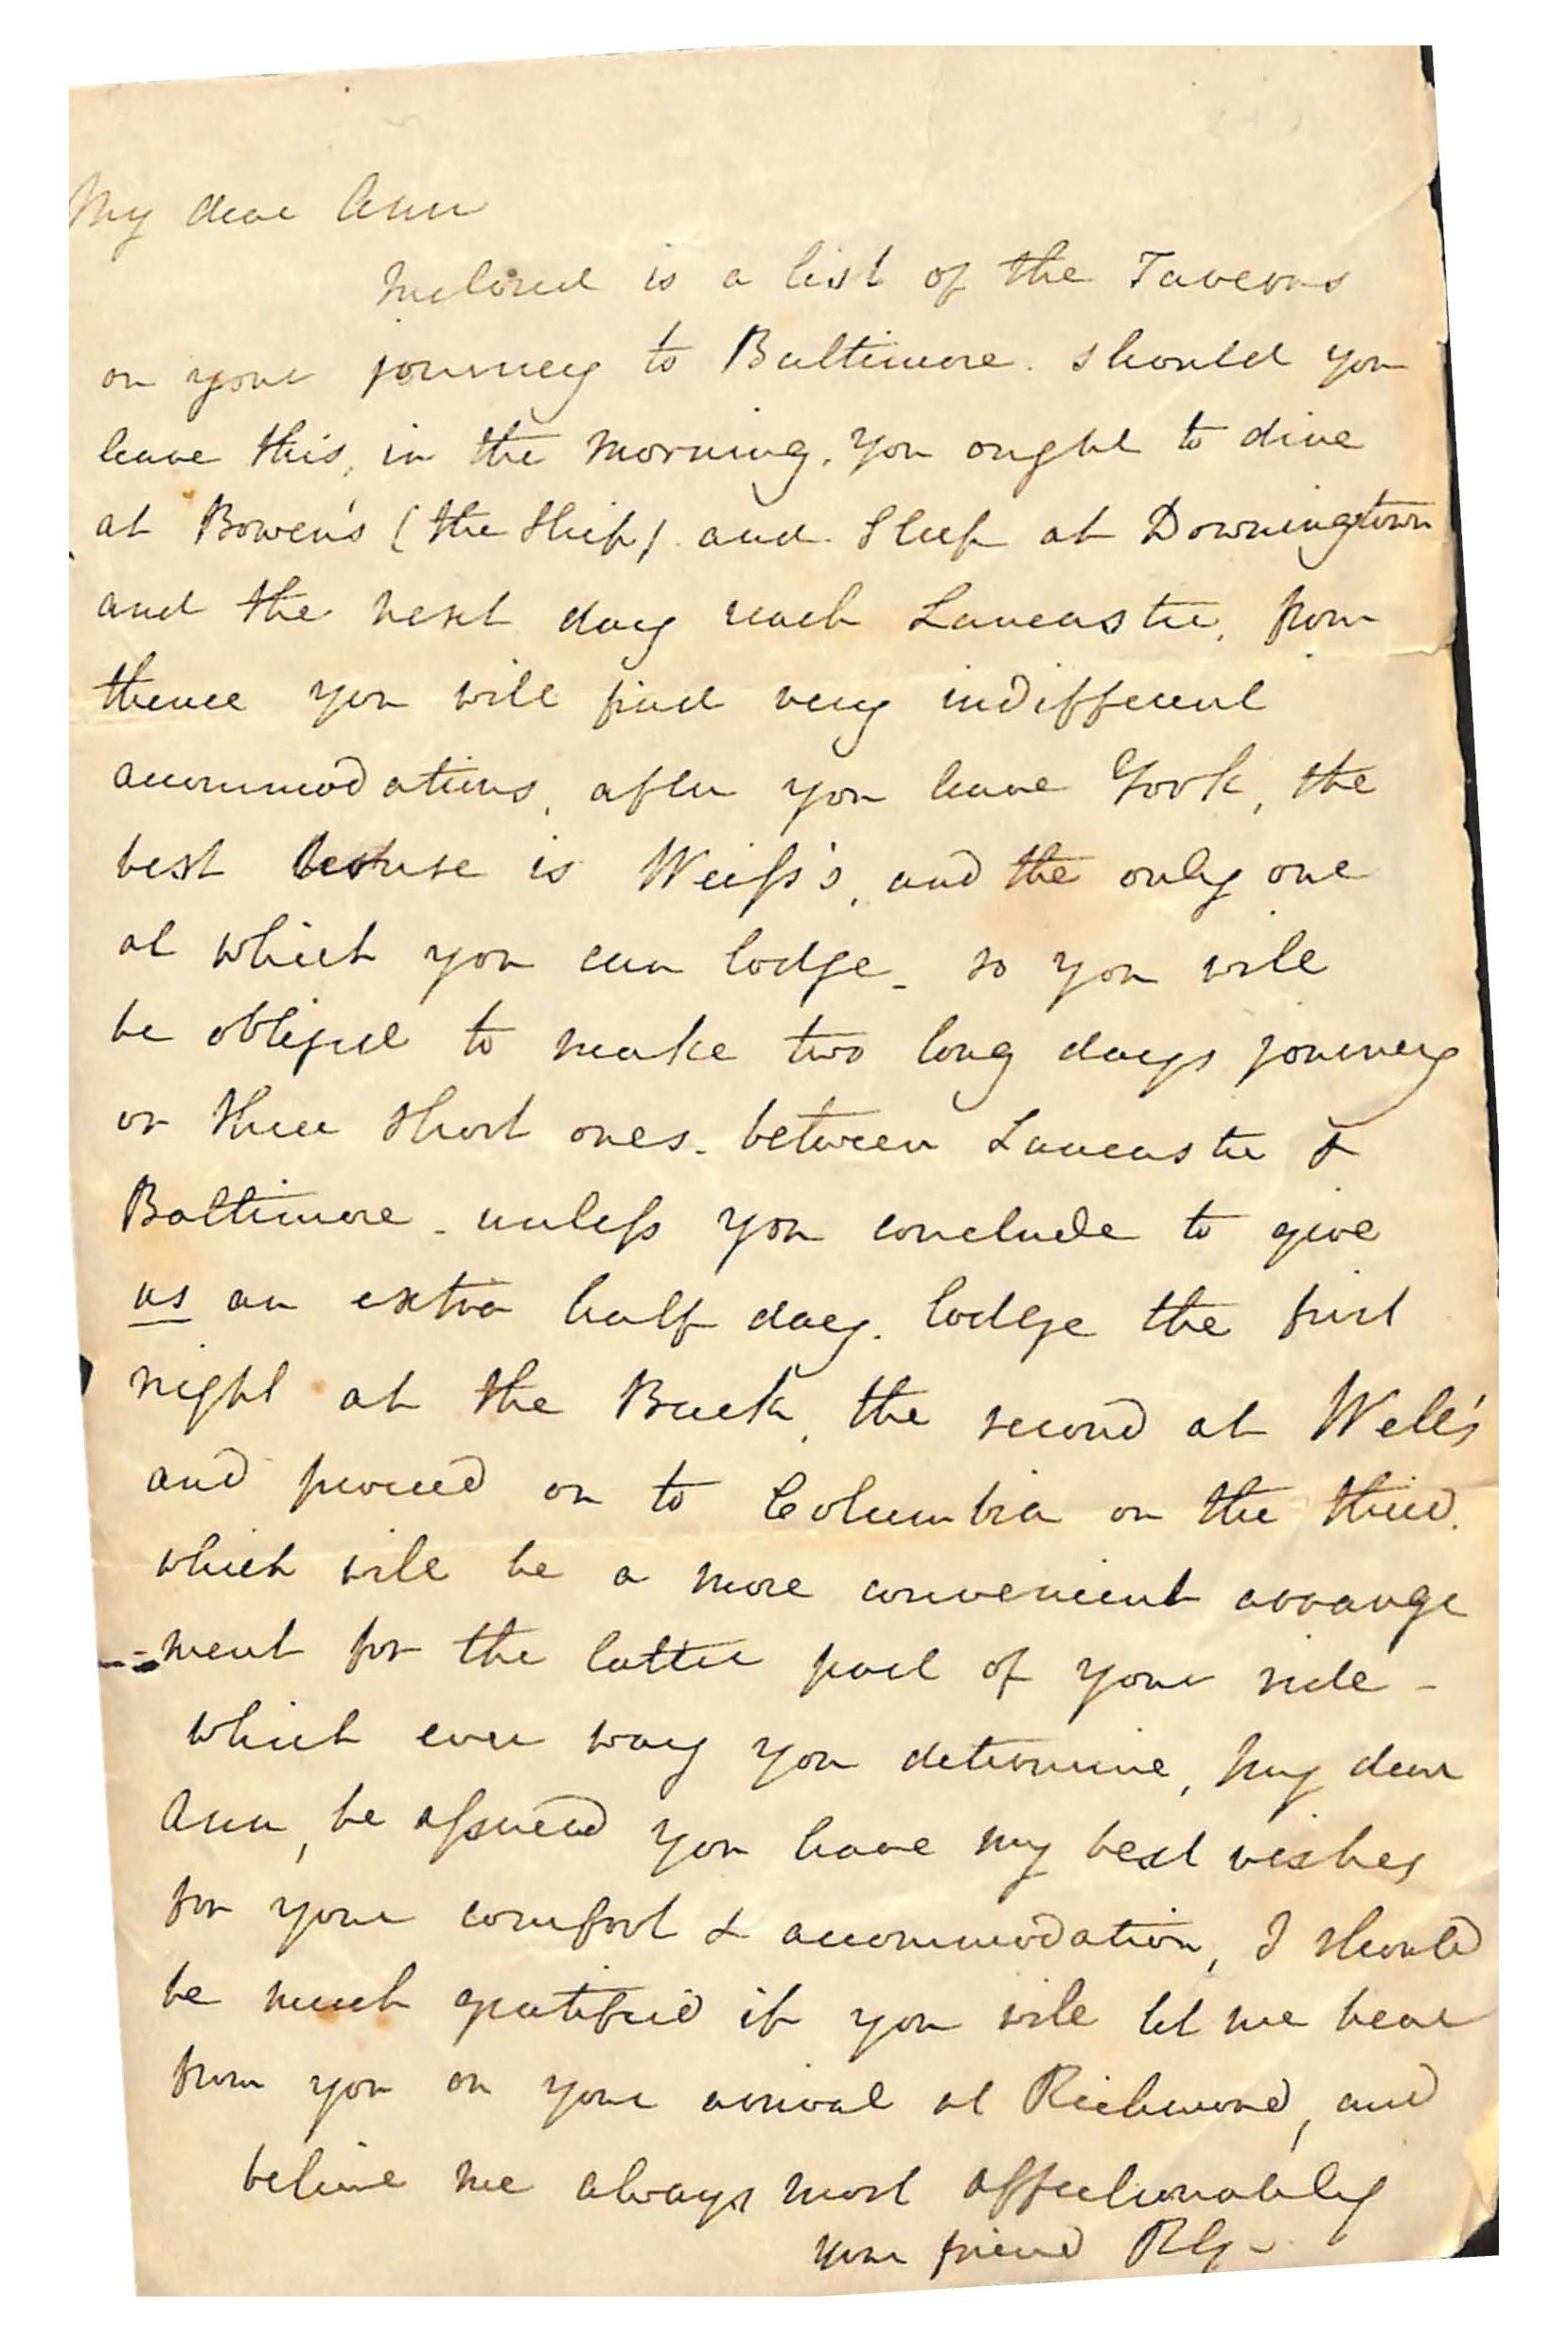 My dear Ann
Inclosed is a list of the Taverns
on your journey to Baltimore. should you
leave this, in the morning, you ought to dine
at Bowen's (the Ship) and Sleep at Downingtown
and the next day reach Lancaster, from
thence you will find very indifferent
accommodations, after you leave York, the
best house is Weiſs's, and the only one
at which you can lodge - so you will
be obliged to make two long days journey
or three short ones - between Lancaster &
Baltimore - unleſs you conclude to give
us an extra half day. lodge the first
night at the Buck, the second at Well's
and proceed on to Columbia on the third.
which will be a more convenient arrange
-ment for the latter part of your ride -
which ever way you determine, my dear
Ann, be aſsured you have my best wishes
for your comfort & accommodation, I should
be much gratified if you will let me hear
from you on your arrival at Richmond, and
believe me always most affectionately
your friend